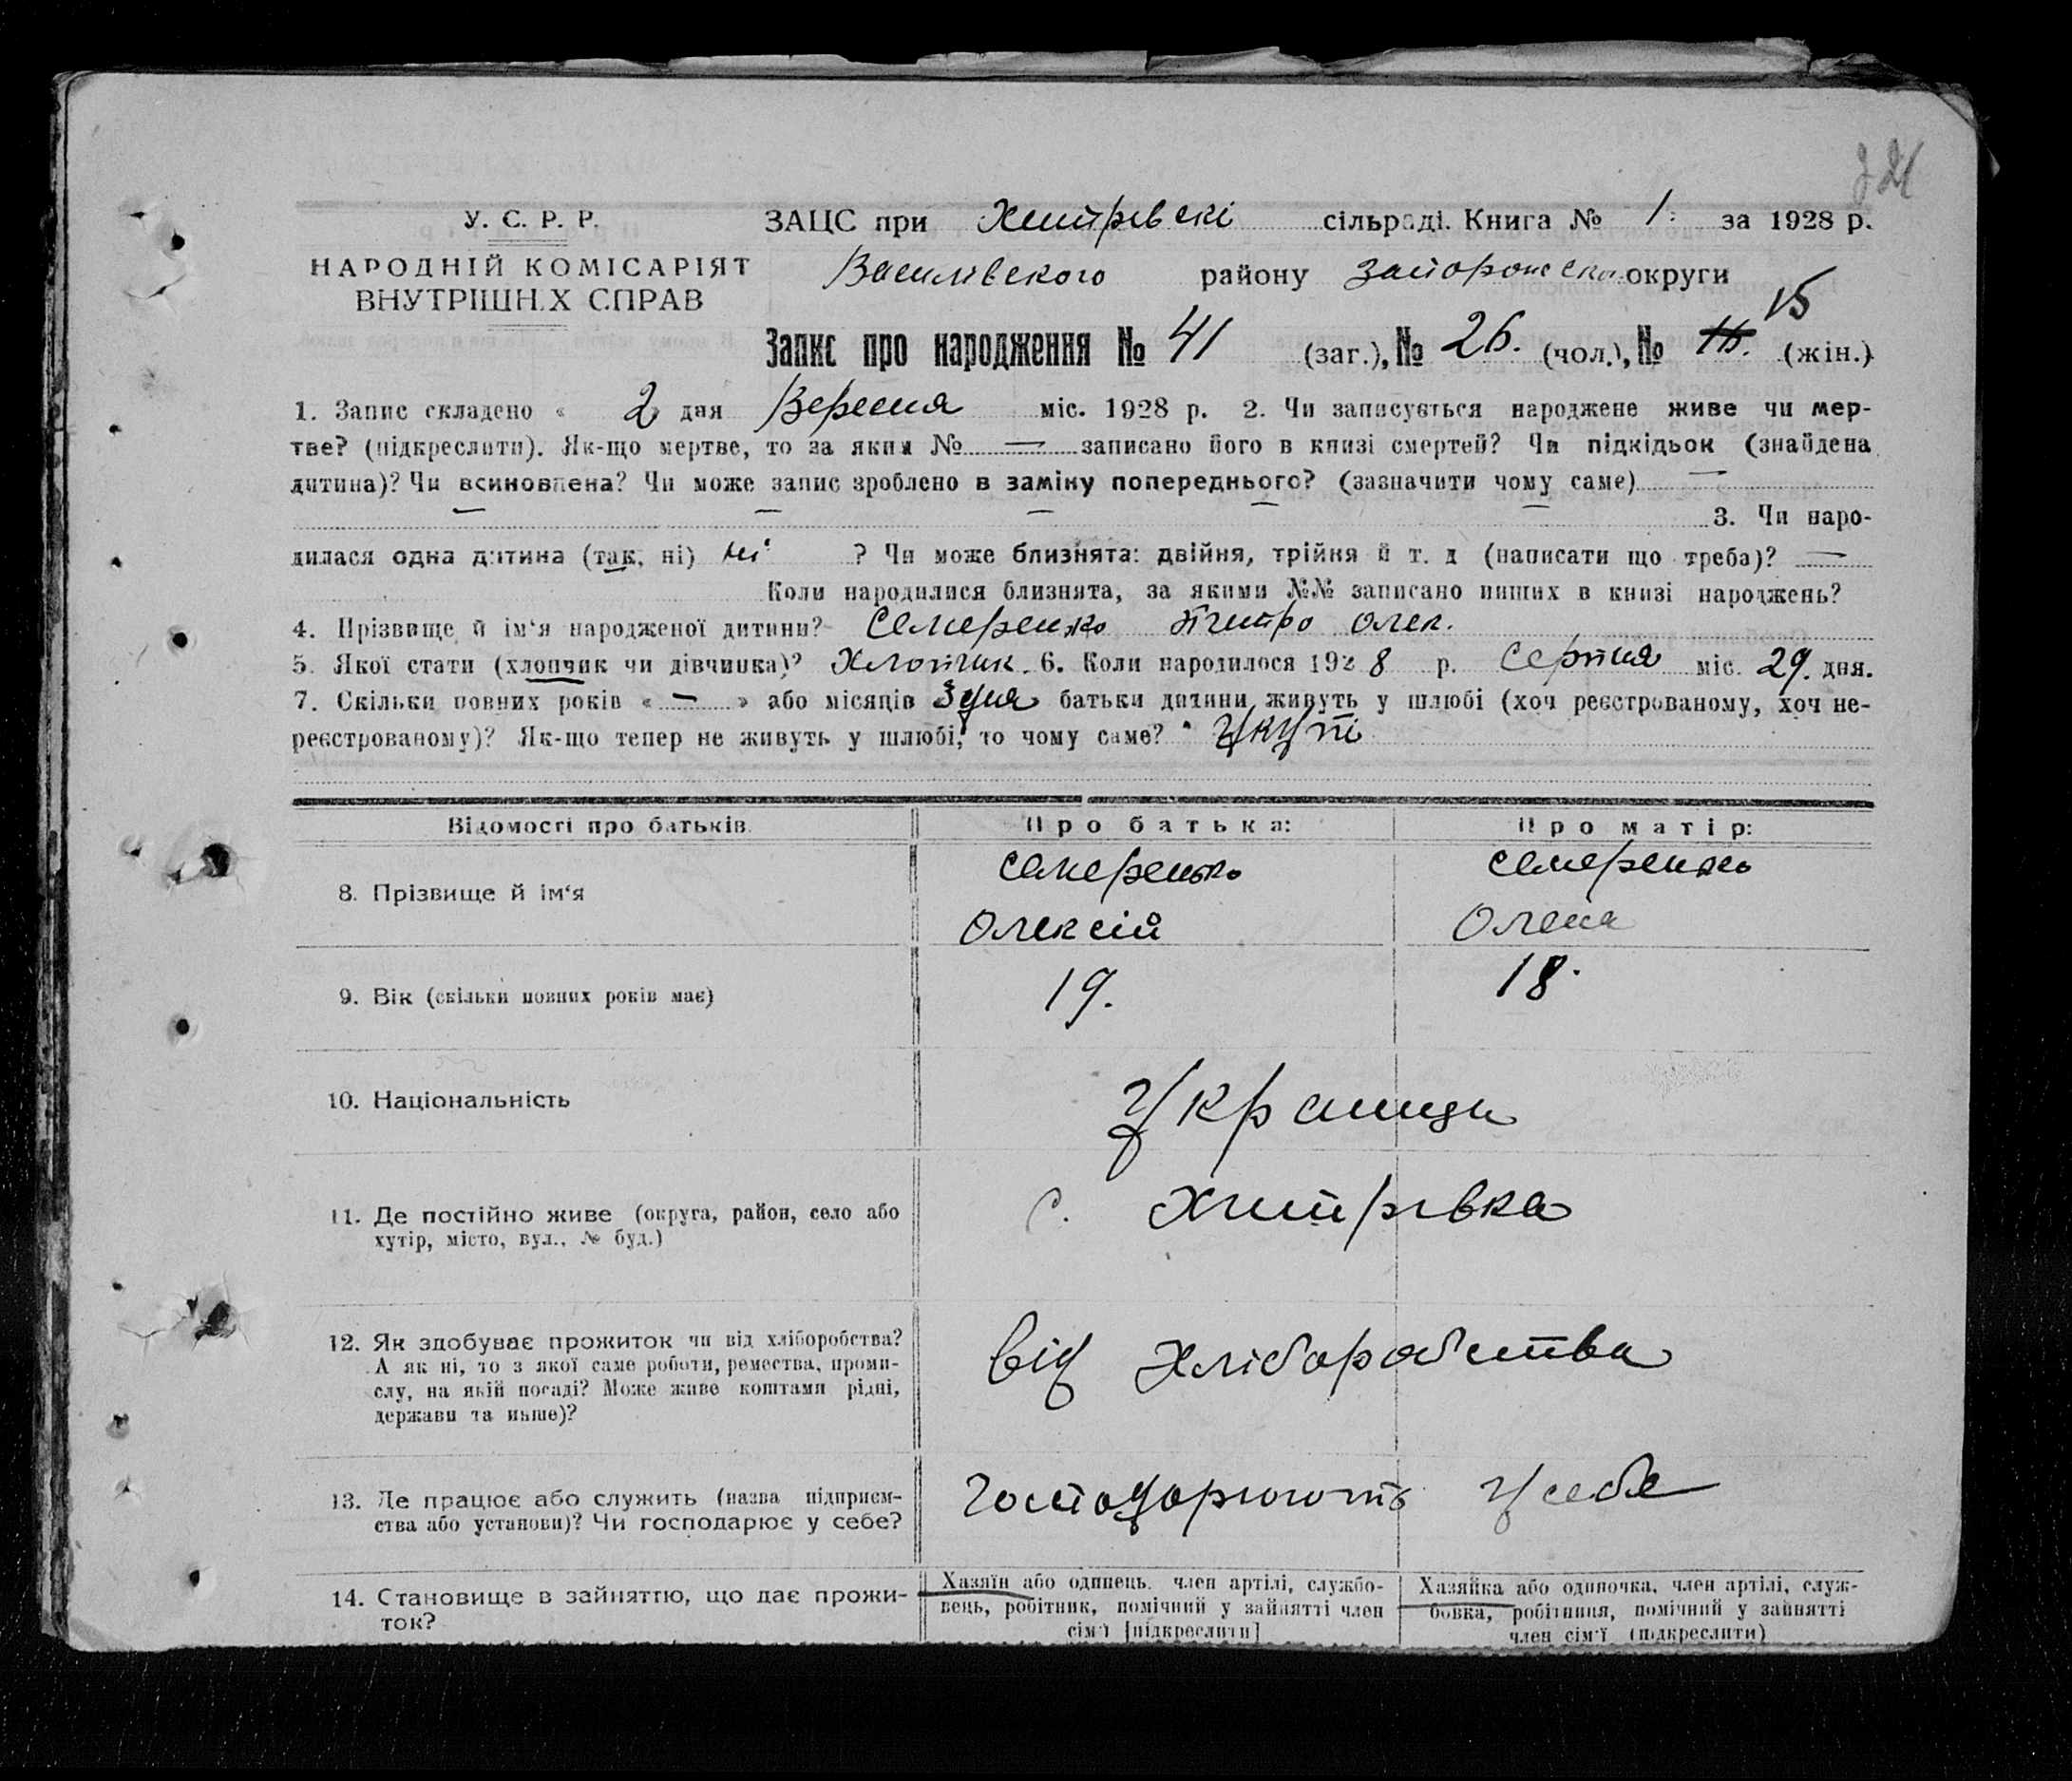 У. С. Р. Р.
НАРОДНІЙ КОМІСАРІЯТ
ВНУТРІШНІХ СПРАВ
ЗАЦС при Хитрівскі сільраді. Книга № 1 за 1928 р.
Василівского району Запорожско округи
15
Запис про народження № 41 (заг.), № 26. (чол.), № (жін.)
1. Запис складено « 2 дня Вересня міс. 1928 р. 2. Чи записується народжене живе чи мер-
тве? (підкреслити). Як-що мертве, то за яким № — записано його в книзі смертей? Чи підкідьок (знайдена
дитина)? Чи всиновлена? Чи може запис зроблено в заміну попереднього? (зазначити чому саме) —
— — — — — 3. Чи наро-
дилася одна дитина (так, ні) ні ? Чи може близнята: двійня, трійня й т. д (написати що треба)? —
Коли народилися близнята, за якими №№ записано инших в книзі народжень?
4. Прізвище й ім'я народженої дитини? Семеренко Дмитро Олек.
5. Якої стати (хлопчик чи дівчинка)? Хлопчик. 6. Коли народилося 1928 р. Серпня міс. 29. дня.
7. Скільки повних років « — » або місяців батьки дитини живуть у шлюбі (хоч реєстрованому, хоч не-
реєстрованому)? Як-що тепер не живуть у шлюбі, то чому саме? Укупі
Відомості про батьків
Про батька:
Про матір:
8. Прізвище й ім'я
Семеренко
Олексій
Семеренко
Олена
9. Вік (скільки повних років має)
19.
18.
10. Національність
Українци
11. Де постійно живе (округа, район, село або
хутір, місто, вул., № буд.)
с. Хитрівка
12. Як здобуває прожиток чи від хліборобства?
А як ні, то з якої саме роботи, ремества, проми-
слу, на якій посаді? Може живе коштами рідні,
держави та инше)?
Від Хліборобства
13. Де працює або служить (назва підприєм-
ства або установи)? Чи господарює у себе?
Господорюють У себе
14. Становище в зайняттю, що дає прожи-
ток?
Хазяїн або одинець, член артілі, службо-
вець, робітник, помічний у зайнятті член
сім'ї [підкреслити]
Хазяйка або одиночка, член артілі, служ-
бовка, робітниця, помічний у зайнятті
член сім'ї (підкреслити)